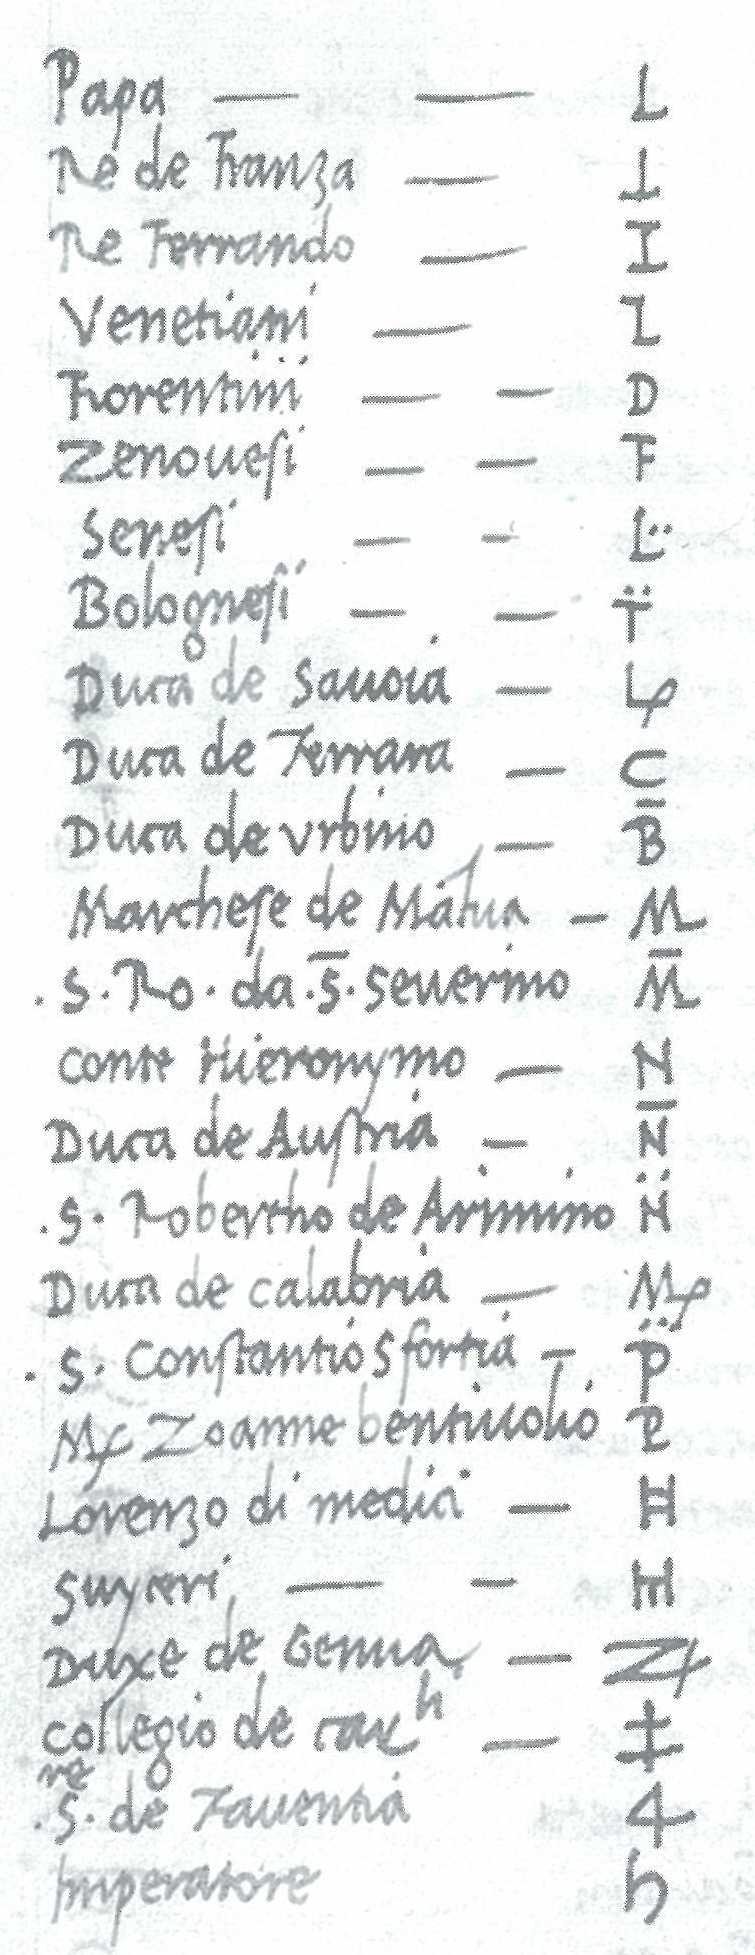 Papa — — L
Re de Franza — ⊥
Re Ferrando — I
Venetiani — Z
Fiorentinij — — D
Zenouesi — — F
Senesi — - L̈
Bolognesi — — T̈
Duca de Sauoia — Lƿ
Duca de Ferrara — C
Duca de vrbino — B̄
Marchese de Mãtua — M
.S. Ro. da .S̄. Seuerino M̄
Conte Hieronymo — N
Duca de Austria — N̄
.S. Robertho de Arimino N̈
Duca de Calabria — Mƿ
.S. Constantio Sfortia — P̈
Mſ Zoanne bentiuolio
Lorenzo di medici — H
Suyceri — -
Duxe de Genua —
Collegio de carh — ‡
.Sre. de Fauentia 4
Imperatore h